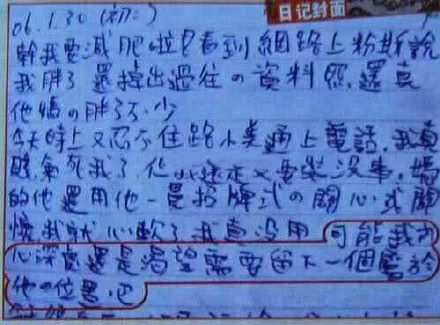 日记封面
06.1.30 (初二)
幹我要減肥啦只看到網路上粉斯說
我胖了 還掉出過往の資料照 還真
他媽の胖了不少
今天時上又忍不住路小美通上電話 我真
氣死我了 又要裝沒事 媽
的他還用他一貫招牌式の關心式關
懷 我就心軟了 我真沒用 可能我內
心深處還是渴望需要留下一個屬於
他の位置吧